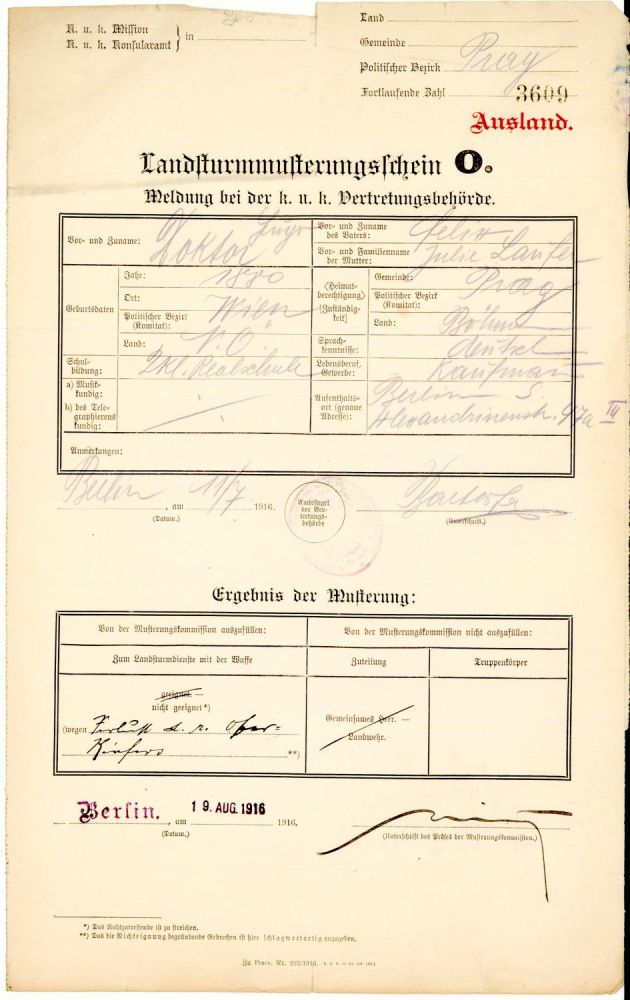 K. u. k. Mission
K. u. k. Konsularamt } in
Land
Gemeinde
Politischer Bezirk Prag
Fortlaufende Zahl 3609
Ausland.
Landsturmmusterungsschein O.
Meldung bei der k. u. k. Vertretungsbehörde.
Vor- und Zuname: Doktor Hugo
Vor- und Zuname des Vaters: Felix
Vor- und Familienname der Mutter: Julie Laufer
Geburtsdaten
Jahr: 1880
Ort: Wien
Politischer Bezirk (Komitat): "
Land: N. Ö.
⟨Heimatberechtigung⟩ [Zuständigkeit]
Gemeinde: Prag
Politischer Bezirk (Komitat):
Land: Böhmen
Schulbildung: 2 Kl. Realschule
Sprachkenntnisse: deutsch
a) Musikkundig:
b) des Telegraphierens kundig:
Lebensberuf, Gewerbe: Kaufmann
Aufenthaltsort (genaue Adresse): Berlin S.
Alexandrinenstr. 97a IV
Anmerkungen:
Berlin, am 11/7 1916.
(Datum.)
Amtssiegel der Vertretungsbehörde
(Unterschrift.)
Ergebnis der Musterung:
Von der Musterungskommission auszufüllen:
Von der Musterungskommission nicht auszufüllen:
Zum Landsturmdienste mit der Waffe
Zuteilung
Truppenkörper
geeignet. —
nicht geeignet*)
(wegen Verlust d. r. Ober-
Kiefers **)
Gemeinsames Heer. —
Landwehr.
Berlin. , am 19. AUG. 1916 1916.
(Datum.)
(Unterschrift des Präses der Musterungskommission.)
*) Das Nichtzutreffende ist zu streichen.
**) Das die Nichteignung begründende Gebrechen ist hier schlagwortartig anzugeben.
Zu Präs. Nr. 293/1916.